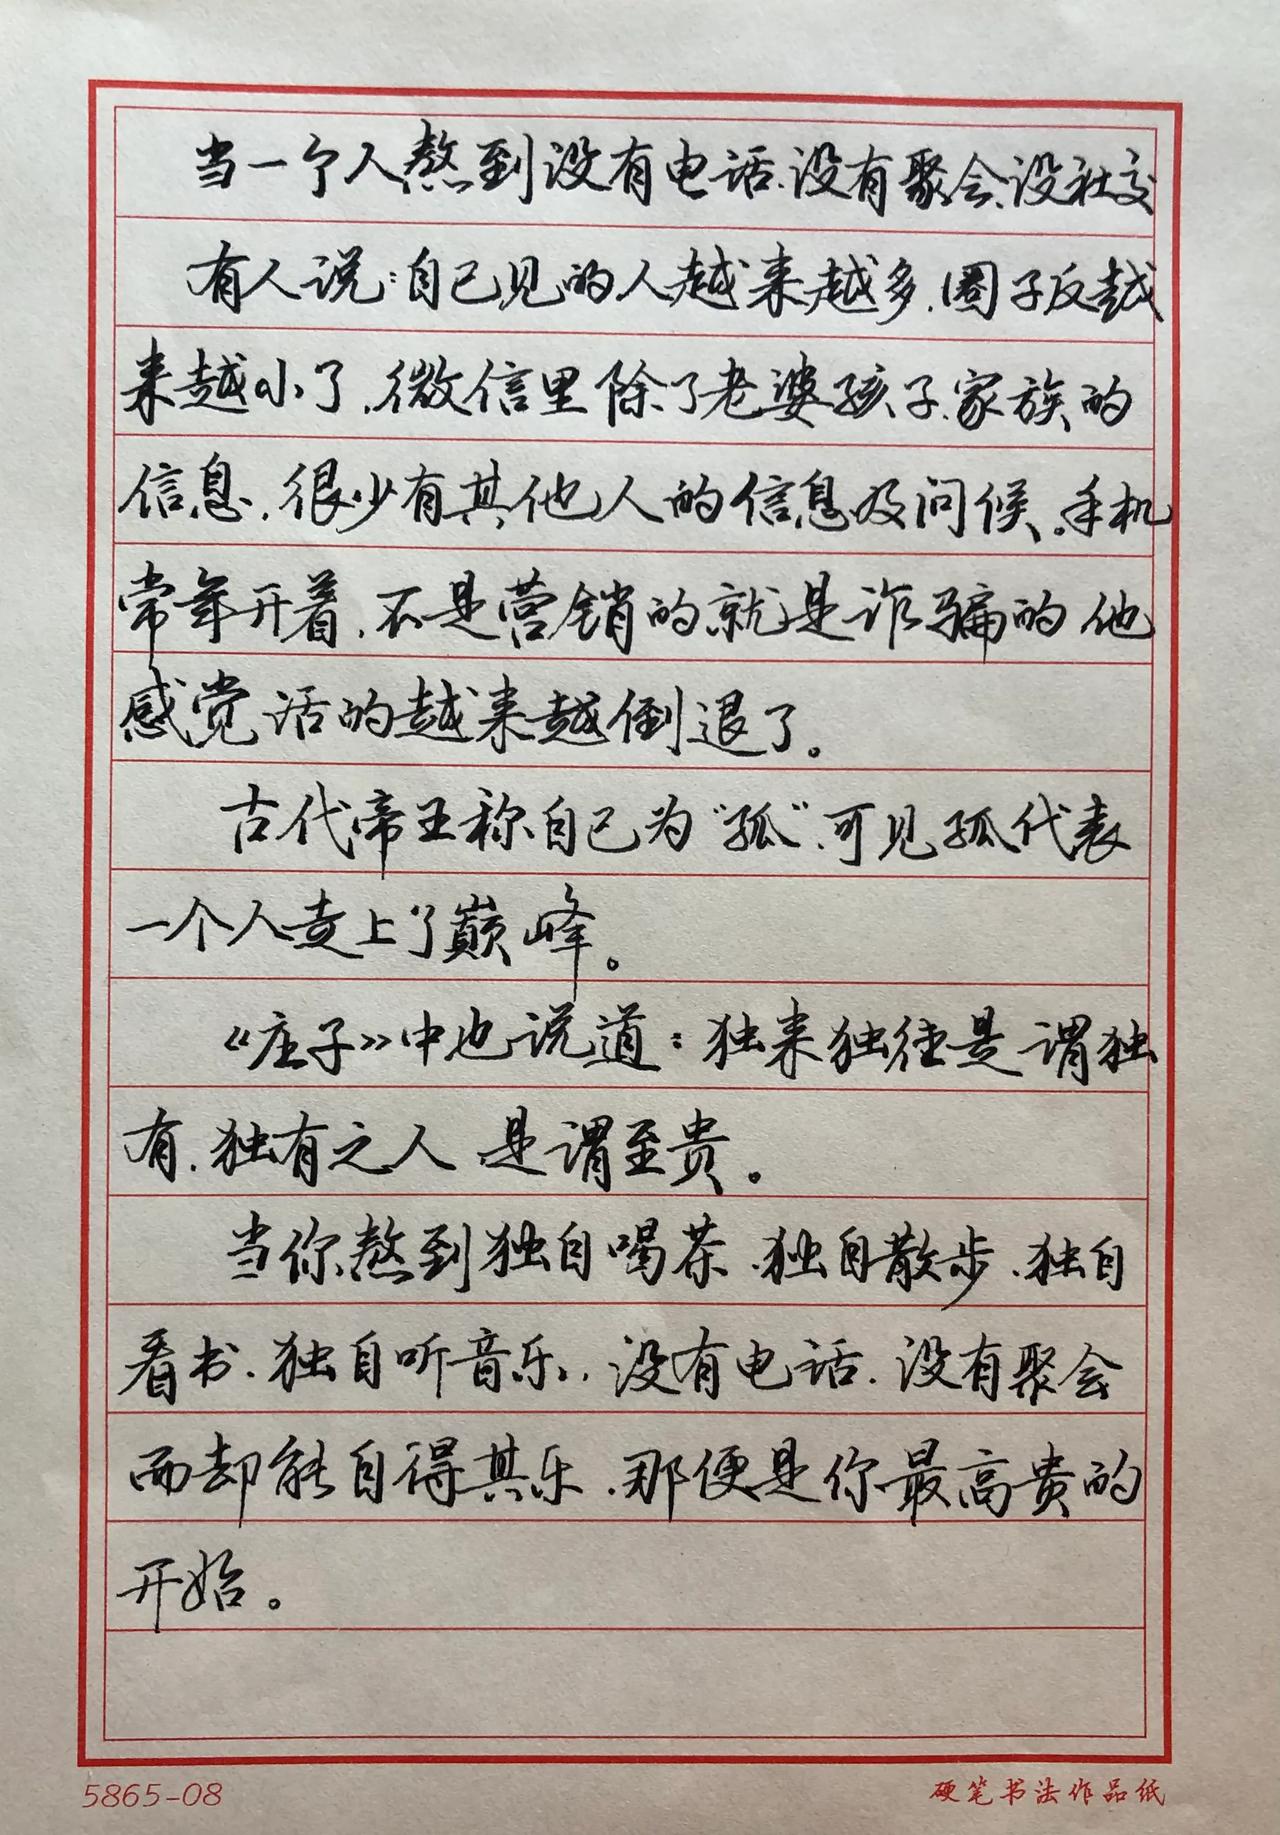 当一个人熬到没有电话、没有聚会、没社交
有人说：自己见的人越来越多，圈子反越
来越小了，微信里除了老婆孩子、家族的
信息，很少有其他人的信息及问候。手机
常年开着，不是营销的就是诈骗的他
感觉活的越来越倒退了。
古代帝王称自己为“孤”，可见孤代表
一个人走上了巅峰。
《庄子》中也说道：独来独往是谓独
有，独有之人 是谓至贵。
当你熬到独自喝茶、独自散步、独自
看书、独自听音乐，没有电话，没有聚会
而却能自得其乐，那便是你最高贵的
开始。
5865-08
硬笔书法作品纸